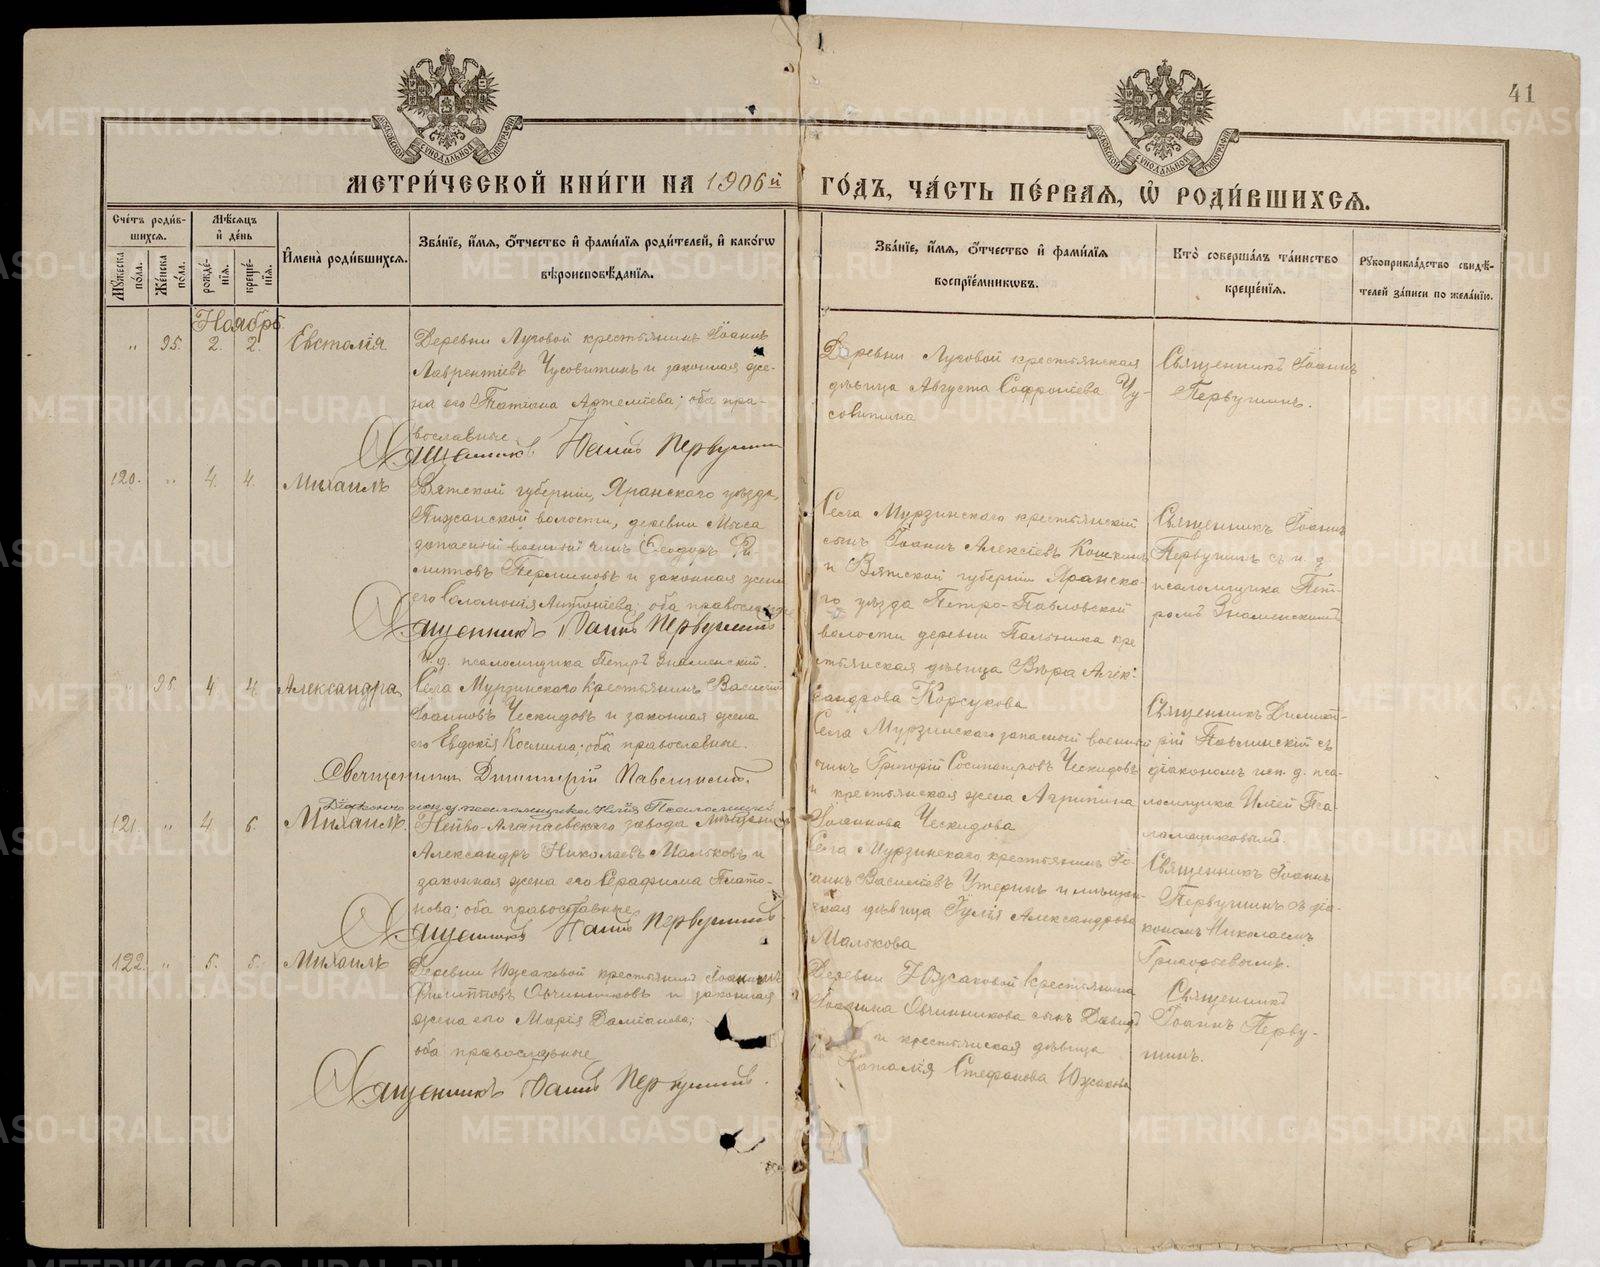 41
МОСКОВСКОЙ СѴНОДАЛЬНОЙ ТИПОГРАФІИ
МОСКОВСКОЙ СѴНОДАЛЬНОЙ ТИПОГРАФІИ
МЕТРИ́ЧЕСКОЙ КНИ́ГИ НА 1906й ГО́ДЪ, ЧА́СТЬ ПЕ́РВАЯ, Ѽ РОДИ́ВШИХСЯ.
Сче́тъ роди́вшихся.
Мѣ́сяцъ и҆ де́нь
Мꙋ́жеска по́ла.
Же́нска по́ла.
рожде́нїя.
креще́нїя.
И҆мена̀ роди́вшихся.
Зва́нїе, и҆́мя, ѻ҆́тчество и҆ фами́лїя роди́телей, и҆ како́гѡ
вѣроисповѣ́данїя.
Зва́нїе, и҆́мя, ѻ҆́тчество и҆ фами́лїя
воспрїе́мникѡвъ.
Кто̀ соверша́лъ та́инство
креще́нїя.
Рꙋкоприкла́дство свидѣ́телей за́писи по жела́нїю.
Ноябрь
„ 95. 2. 2. Евстолія
Деревни Луговой крестьянинъ Іоаннъ
Лаврентіевъ Чусовитинъ и законная же-
на его Татіана Артеміева; оба пра-
вославные
Священникъ Іоаннъ Первушинъ
Деревни Луговой крестьянская
дѣвица Августа Софроніева Чу-
совитина
Священникъ Іоаннъ
Первушинъ.
120. „ 4. 4. Михаилъ
Вятской губерніи, Яранскаго уѣзда,
Пижанской волости, деревни Мыса
запасный военный чинъ Ѳеодоръ Фи
липповъ Перминовъ и законная жена
его Соломонія Антоніева, оба православные
Священникъ Іоаннъ Первушинъ
И. д. псаломщика Петръ Знаменскій.
Села Мурзинскаго крестьянскій
сынъ Іоаннъ Алексіевъ Кошкинъ
и Вятской губерніи Яранска-
го уѣзда Петро-Павловской
волости деревни Пальника кре
стьянская дѣвица Вѣра Алек-
сандрова Корсукова
Священникъ Іоаннъ
Первушинъ съ и. д.
псаломщика Пет-
ромъ Знаменскимъ
96. 4. 4. Александра
Села Мурзинскаго крестьянинъ Василій
Іоанновъ Ческидовъ и законная жена
его Евдокія Космина; оба православные.
Священникъ Димитрій Павлинскій.
Діаконъ исп. д. псаломщика Илія
Села Мурзинскаго запасный военный
чинъ Григорій Сосипатровъ Ческидовъ
и крестьянская жена Агрипина
Іоаннова Ческидова
Священникъ Димит-
рій Павлинскій съ
діакономъ исп. д. пса-
ломщика Иліей Пса-
ломщиковымъ
121. „ 4. 6. Михаилъ.
Нейво-Алапаевскаго завода мѣщанинъ
Александръ Николаевъ Мальковъ и
законная жена его Серафима Плато-
нова; оба православные
Священникъ Іоаннъ Первушинъ
Села Мурзинскаго крестьянинъ Іо-
аннъ Василіевъ Утеринъ и мѣщан-
ская дѣвица Іулія Александрова
Малькова
Священникъ Іоаннъ
Первушинъ съ діа-
кономъ Николаемъ
Григорьевымъ.
122. „ 5. 5. Михаилъ
Деревни Южаковой крестьянинъ Іоакимъ
Филипповъ Овчинниковъ и законная
жена его Марія Даміанова;
оба православные
Священникъ Іоаннъ Первушинъ.
Деревни Южаковой крестьянина
Іоакима Овчинникова сынъ Давидъ
и крестьянская дѣвица
Наталія Стефанова Южакова
Священникъ
Іоаннъ Перву-
шинъ.
METRIKI.GASO-URAL.RU